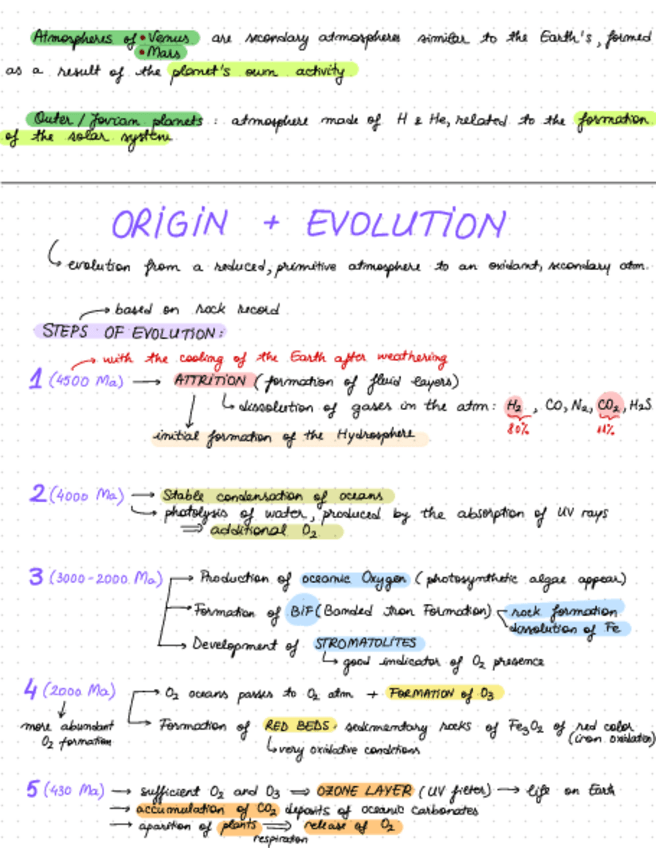 Atmospheres of • Venus are secondary atmospheres similar to the Earth's, formed
• Mars
as a result of the planet's own activity
Outer / Jovian planets : atmosphere made of H & He, related to the formation
of the solar system
ORIGIN + EVOLUTION
evolution from a reduced, primitive atmosphere to an oxidant, secondary atm.
based on rock record
STEPS OF EVOLUTION:
with the cooling of the Earth after weathering
1 (4500 Ma) → ATTRITION (formation of fluid layers)
dissolution of gases in the atm: H2, CO, N2, CO2, H2S
80% 11%
initial formation of the Hydrosphere
2 (4000 Ma) → Stable condensation of oceans
photolysis of water, produced by the absorption of UV rays
⇒ additional O2
3 (3000-2000 Ma) → Production of oceanic Oxygen (photosynthetic algae appear)
Formation of BiF (Banded Iron Formation) rock formation
dissolution of Fe
Development of STROMATOLITES
good indicator of O2 presence
4 (2000 Ma) O2 oceans passes to O2 atm + FORMATION of O3
more abundant
O2 formation
Formation of RED BEDS: sedimentary rocks of Fe3O2 of red color
(iron oxidation)
very oxidative conditions
5 (430 Ma) → sufficient O2 and O3 ⇒ OZONE LAYER (UV filter) → life on Earth
→ accumulation of CO2 deposits of oceanic carbonates
→ aparition of plants ⇒ release of O2
respiration